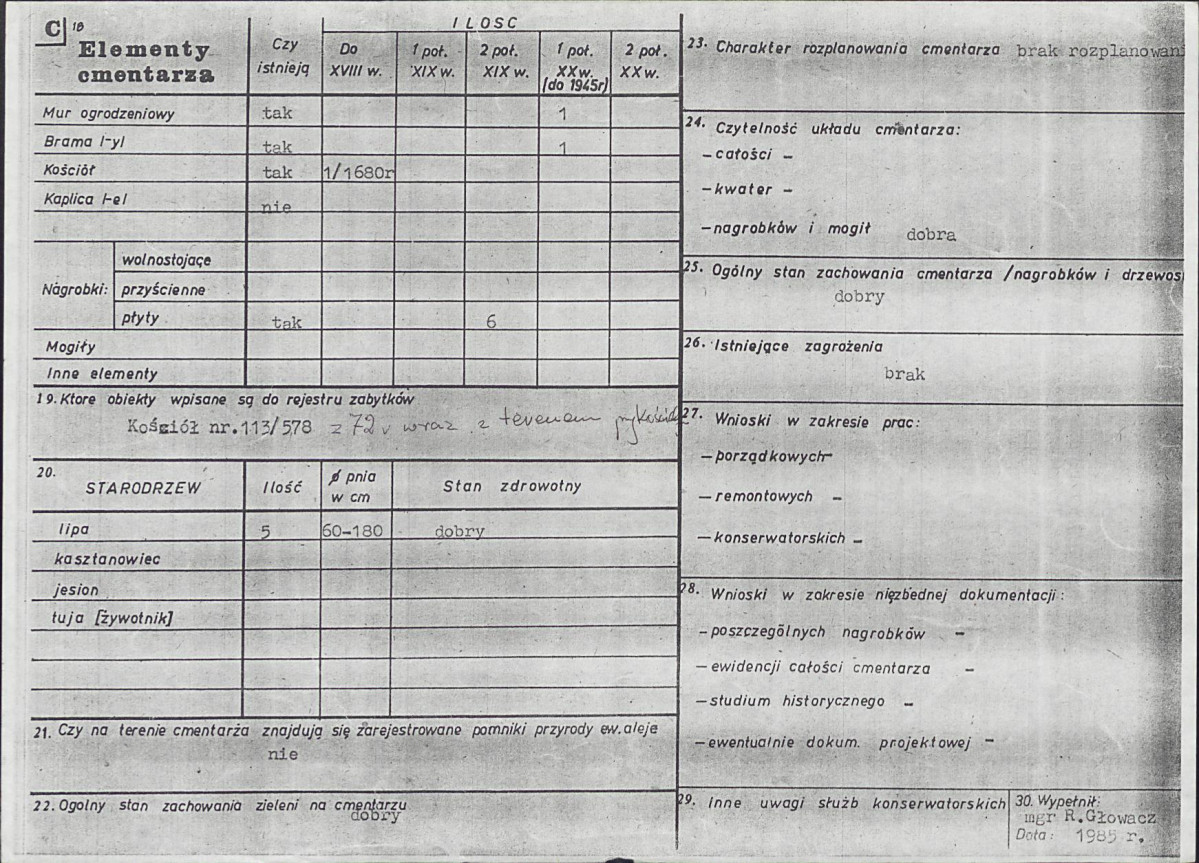 C 18
Elementy cmentarza
Czy istnieją
ILOSC
Do XVIII w.
1 poł. XIX w.
2 poł. XIX w.
1 poł. XX w. (do 1945r)
2 poł. XX w.
Mur ogrodzeniowy tak 1
Brama /-y/ tak 1
Kościół tak 1/1680r
Kaplica /-e/ nie
Nagrobki:
wolnostojące
przyścienne
płyty tak 6
Mogiły
Inne elementy
19. Ktore obiekty wpisane są do rejestru zabytków
Kośeiół nr.113/578 z 72 r wraz z terenem
20. STARODRZEW Ilość ø pnia w cm Stan zdrowotny
lipa 5 60-180 dobry
kasztanowiec
jesion
tuja [żywotnik]
21. Czy na terenie cmentarza znajdują się zarejestrowane pomniki przyrody ew. aleje
nie
22. Ogolny stan zachowania zieleni na cmentarzu
dobry
23. Charakter rozplanowania cmentarza brak rozplanowani
24. Czytelność układu cmentarza:
- całości -
- kwater -
- nagrobków i mogił dobra
25. Ogólny stan zachowania cmentarza /nagrobków i drzewos
dobry
26. Istniejące zagrożenia
brak
27. Wnioski w zakresie prac:
- porządkowych-
- remontowych -
- konserwatorskich -
28. Wnioski w zakresie niezbednej dokumentacji:
- poszczególnych nagrobków -
- ewidencji całości cmentarza -
- studium historycznego -
- ewentualnie dokum. projektowej -
29. Inne uwagi służb konserwatorskich
30. Wypełnił:
mgr R.Głowacz
Data: 1985 r.